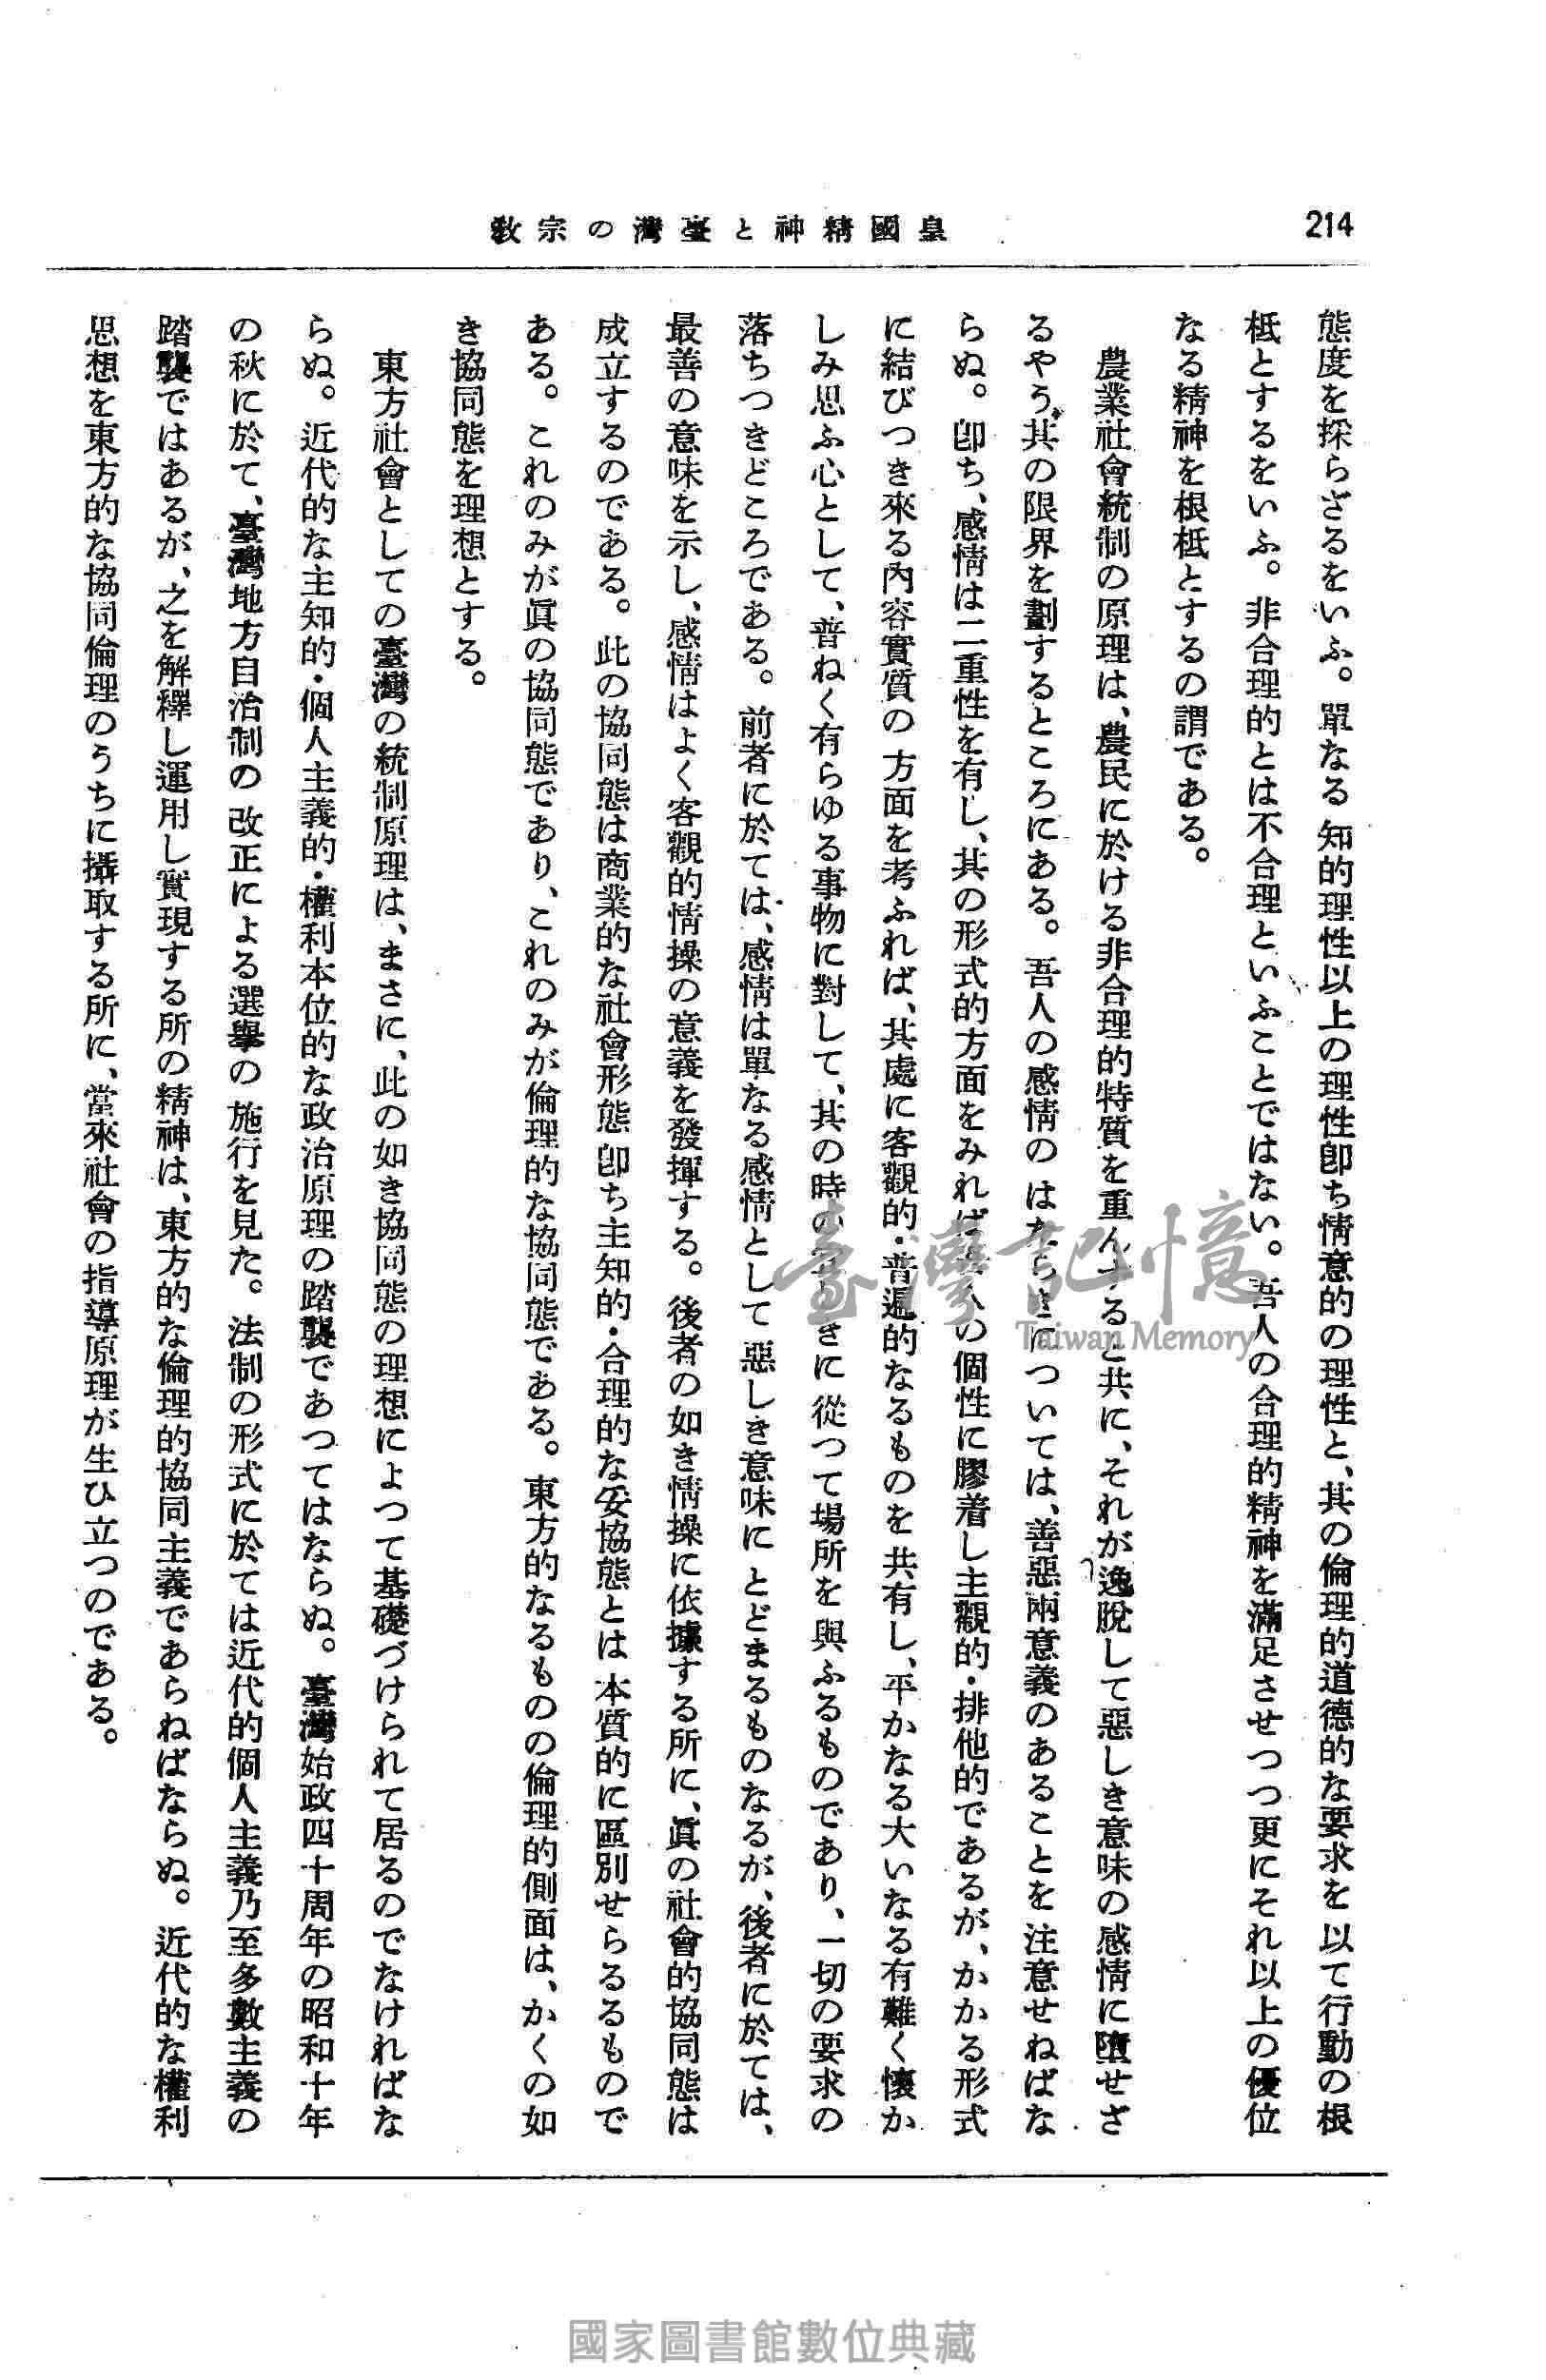 214
皇國精神と臺灣の宗教
態度を採らざるをいふ。單なる知的理性以上の理性卽ち情意的の理性と、其の倫理的道德的な要求を以て行動の根
柢とするをいふ。非合理的とは不合理といふことではない。吾人の合理的精神を滿足させつつ更にそれ以上の優位
なる精神を根柢とするの謂である。
農業社會統制の原理は、農民に於ける非合理的特質を重んずると共に、それが逸脫して惡しき意味の感情に墮せざ
るやう其の限界を劃するところにある。吾人の感情のはたらきについては、善惡兩意義のあることを注意せねばな
らぬ。卽ち、感情は二重性を有し、其の形式的方面をみれば の個性に膠着し主觀的・排他的であるが、かかる形式
に結びつき來る內容實質の方面を考ふれば、其處に客觀的・普遍的なるものを共有し、平かなる大いなる有難く懷か
しみ思ふ心として、普ねく有らゆる事物に對して、其の時の きに從つて場所を與ふるものであり、一切の要求の
落ちつきどころである。前者に於ては、感情は單なる感情として惡しき意味にとどまるものなるが、後者に於ては、
最善の意味を示し、感情はよく客觀的情操の意義を發揮する。後者の如き情操に依據する所に、眞の社會的協同態は
成立するのである。此の協同態は商業的な社會形態卽ち主知的・合理的な妥協態とは本質的に區別せらるるもので
ある。これのみが眞の協同態であり、これのみが倫理的な協同態である。東方的なるものの倫理的側面は、かくの如
き協同態を理想とする。
東方社會としての臺灣の統制原理は、まさに、此の如き協同態の理想によつて基礎づけられて居るのでなければな
らぬ。近代的な主知的・個人主義的・權利本位的な政治原理の踏襲であつてはならぬ。臺灣始政四十周年の昭和十年
の秋に於て、臺灣地方自治制の改正による選擧の施行を見た。法制の形式に於ては近代的個人主義乃至多數主義の
踏襲ではあるが、之を解釋し運用し實現する所の精神は、東方的な倫理的協同主義であらねばならぬ。近代的な權利
思想を東方的な協同倫理のうちに攝取する所に、當來社會の指導原理が生ひ立つのである。
臺灣記憶
Taiwan Memory
國家圖書館數位典藏